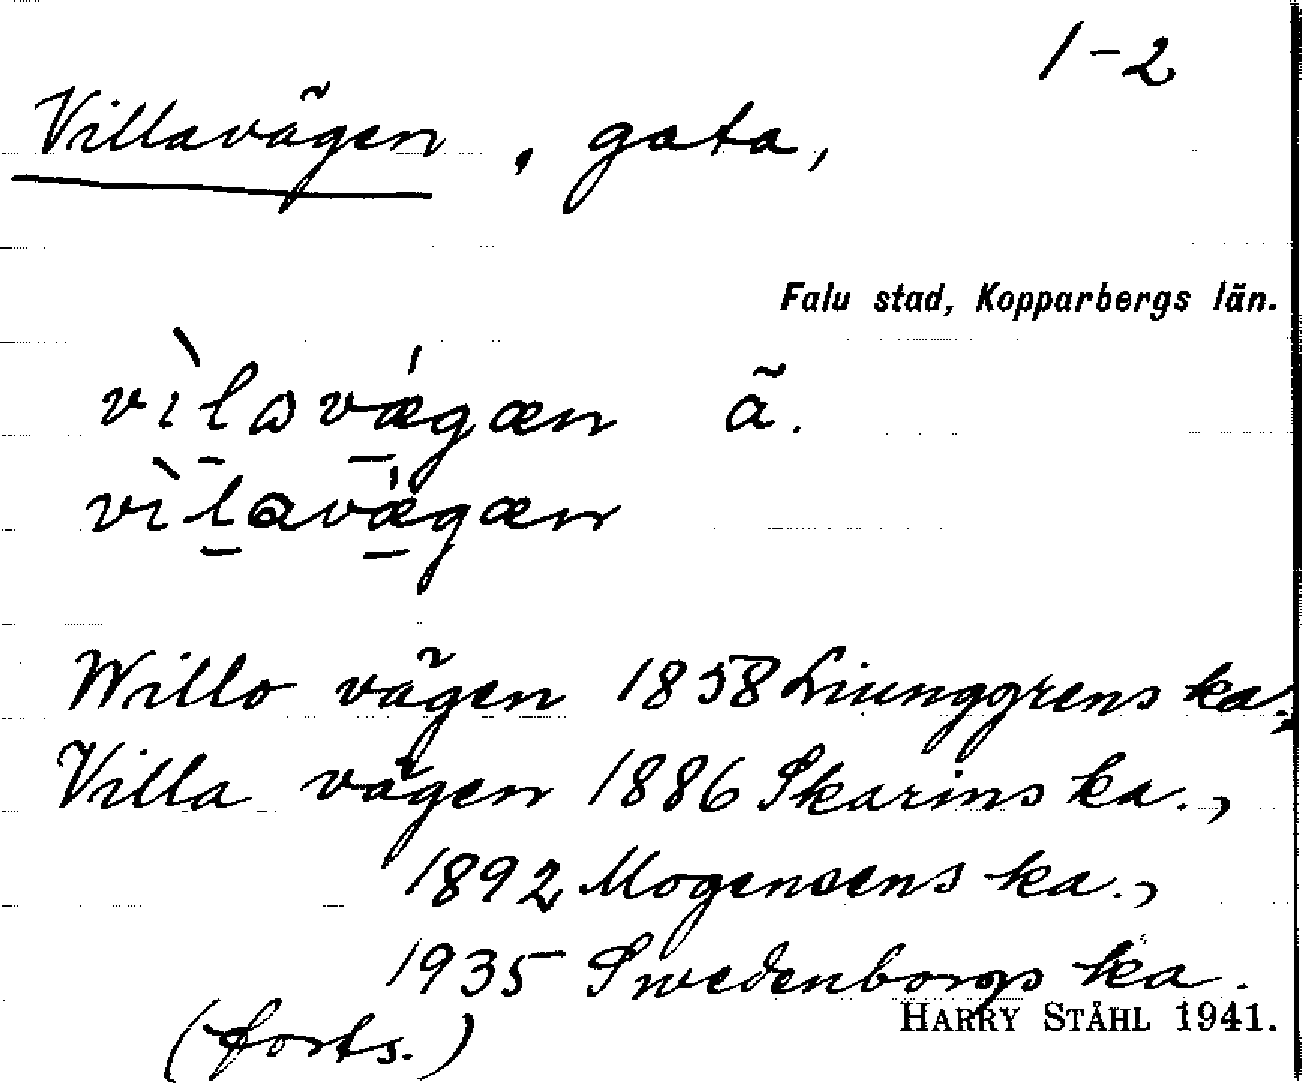 1-2
Villavägen, gata,
Falu stad, Kopparbergs län.
vìlɷvǽgæn ã.
vìlavǽgæn
Willo vägen 1858 Liunggrens ka.,
Villa vägen 1886 Skarins ka.,
1892 Mogensens ka.,
1935 Swedenborgs ka.
HARRY STÅHL 1941.
(forts.)